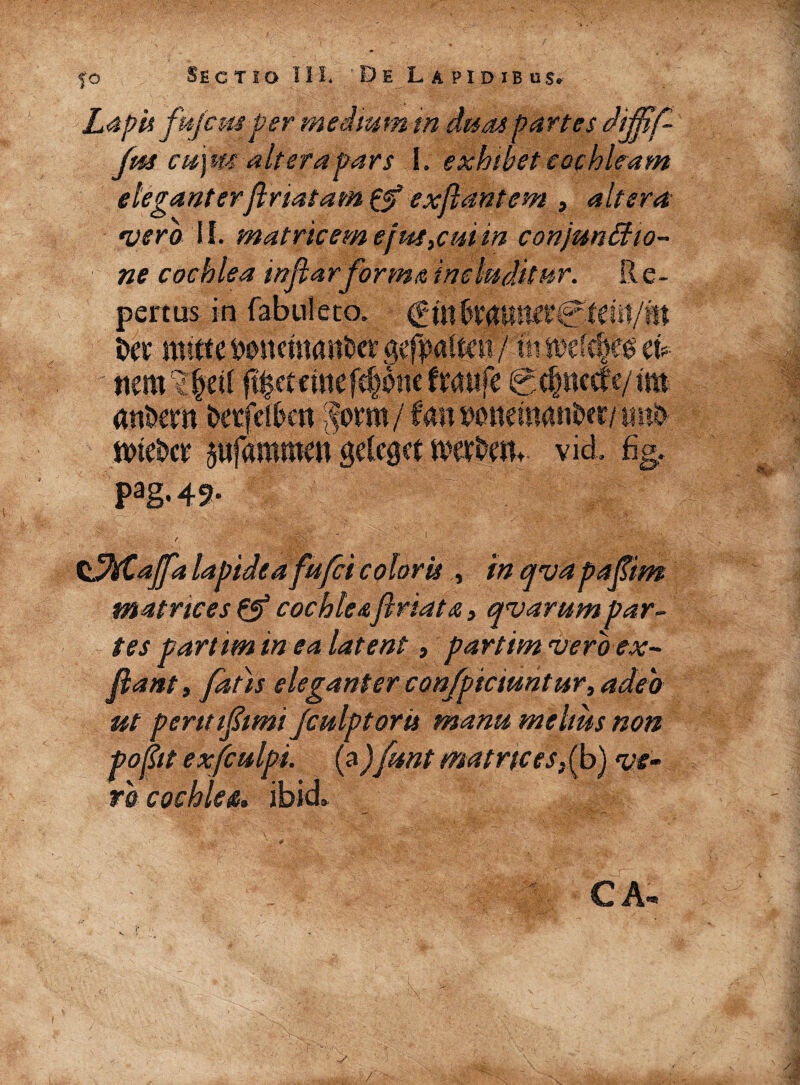 50 SECTIO III. DE LAPIDIBUS.
Lapis fuscus per medium in duas partes diffis-
sus cujus altera pars I. exhibet cochleam
eleganter striatam & exstantem, altera
vero II. matricem ejus, cui in conjunctio-
ne cochlea instar formæ includitur. Re-
pertus in fabuleto. Ein brauner Stein/in
der mitte voneinander gespalten / in welches ei-
nem Theil sitzet eine schöne krause Schnecke/ im
andern derselben Form / kan voneinander/ und
wieder zusammen geleget werden. vid. fig.
pag. 49.
Massa lapidea fusci coloris, in qva passim
matrices & cochleæ striatæ, qvarum par-
tes partim in ea latent, partim vero ex-
stant, satis eleganter conspiciuntur, adeo
ut peritissimi sculptoris manu melius non
possit exsculpi. (a) sunt matrices, (b) ve-
ro cochleæ. ibid.
CA-